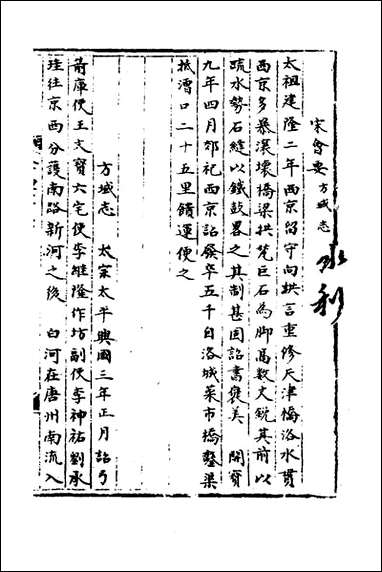 宋會要 方域志 水利
太祖建隆二年西京留守向拱言重修天津橋洛水貫
西京多暴漲壞橋梁拱甃巨石為脚高數丈銳其前以
疏水勢石縫以鐵鼓絡之其制甚固詔書褒美 開寶
九年四月郊祀西京詔發卒五千自洛城菜市橋鑿渠
抵漕口二十五里饋運便之
方域志 太宗太平興國三年正月詔弓
箭庫使王文寶六宅使李繼隆作坊副使李神祐劉承
珪往京西分護南路新河之役 白河在唐州南流入